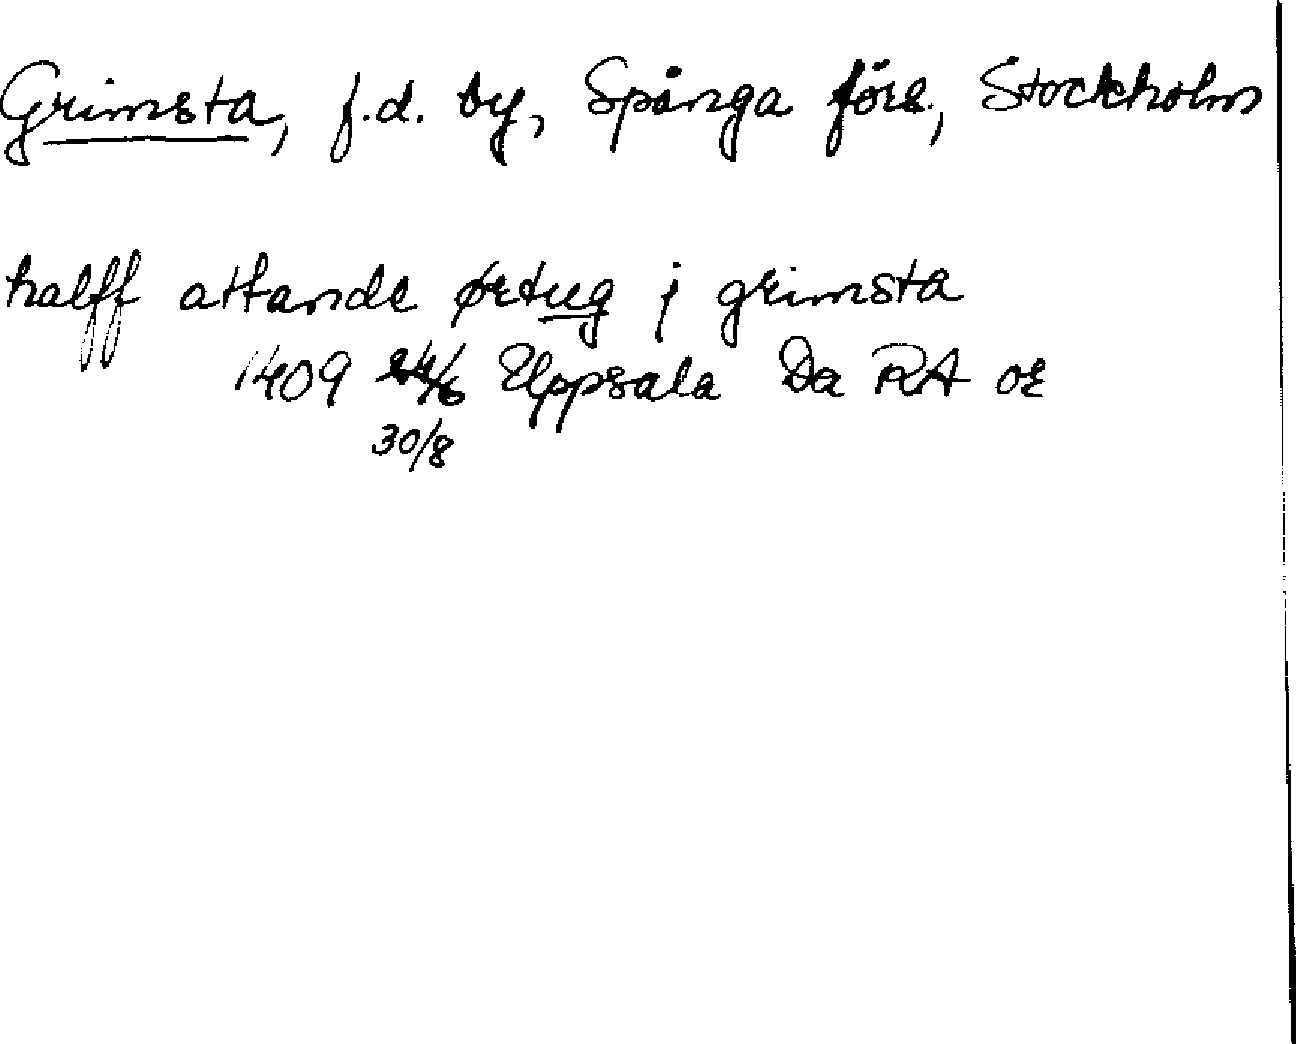 Grimsta, f.d. by, Spånga förs., Stockholm
halff attande ørtug j grimsta
1409 24/6 Uppsala Da RA or
30/8